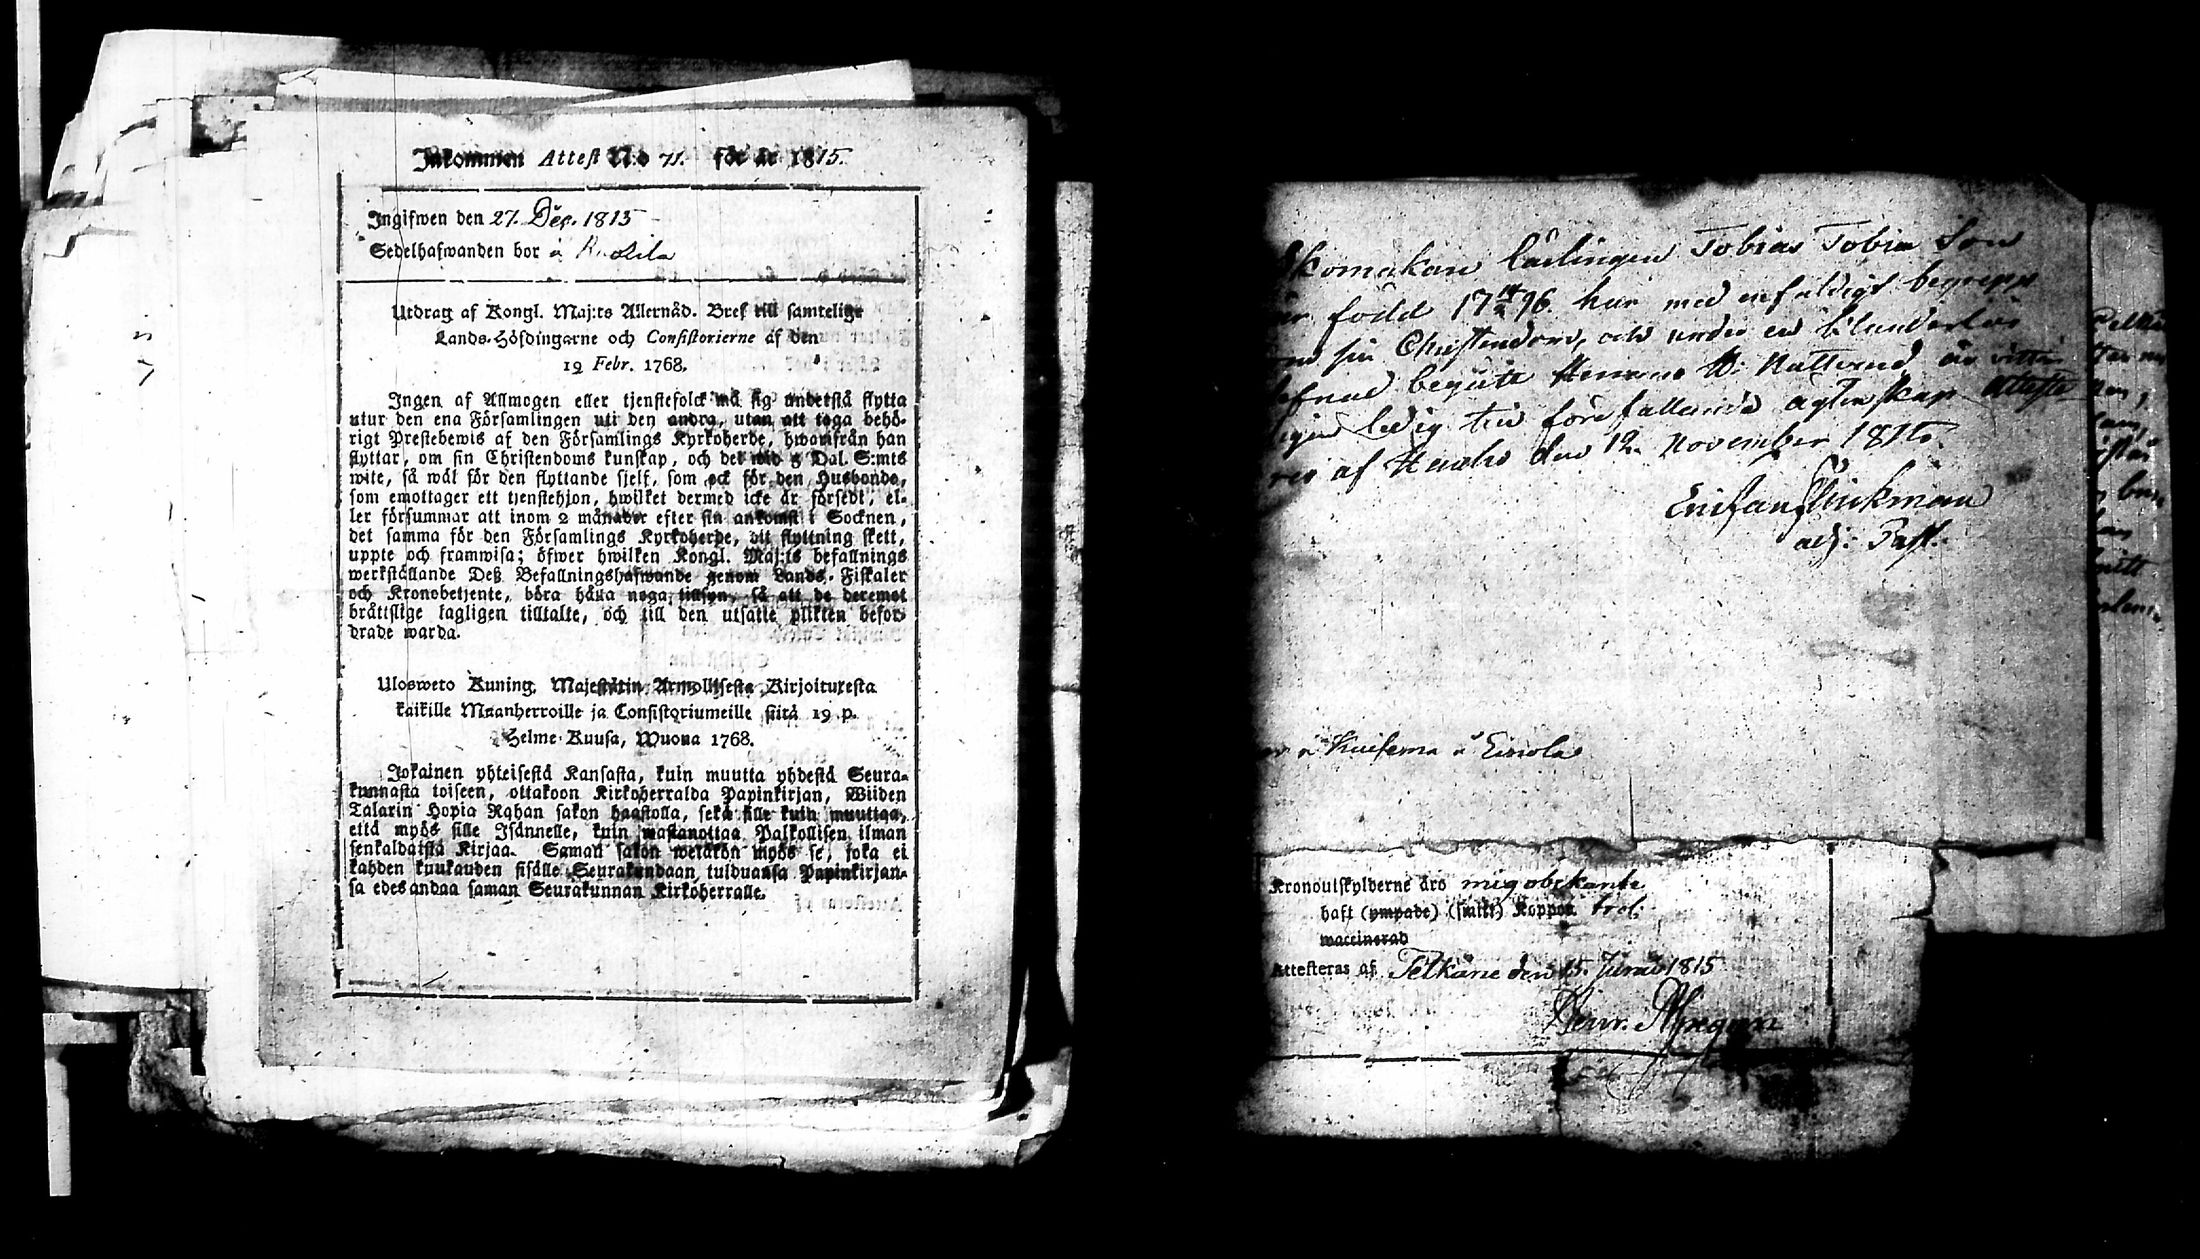 Inkommen Attest N:o 71. för år 1815.
Ingifwen den 27. Dec. 1815
Sedelhafwanden bor å
Utdrag af Kongl. Maj:ts Allernåd. Bref till samtelige
Lands-Höfdingarne och Consistorierne af den
19 Febr. 1768.
Ingen af Allmogen eller tjenstefolck må sig understå flytta
utur den ena Församlingen uti den andra, utan att taga behö-
rigt Prestebewis af den Församlings Kyrkoherde, hwarifrån han
flyttar, om sin Christendoms kunskap, och det wid 5 Dal. S:mts
wite, så wäl för den flyttande sjelf, som ock för den Husbonde,
som emottager ett tjenstehjon, hwilket dermed icke är försedt, el-
ler försummar att inom 2 månader efter sin ankomst i Socknen,
det samma för den Församlings Kyrkoherde, dit flyttning skett,
uppte och framwisa; öfwer hwilken Kongl. Maj:ts befallnings
werkställande Deß Befallningshafwande genom Lands-Fiskaler
och Kronobetjente, böra hålla noga tillsyn, så att de deremot
bråttslige lagligen tilltalte, och till den utsatte plikten befor-
drade warda.
Ulosweto Kuning. Majestätin Armollisesta Kirjoituxesta
kaikille Maanherroille ja Consistoriumeille siitä 19 p.
Helme-Kuusa, Wuona 1768.
Jokainen yhteisestä Kansasta, kuin muutta yhdestä Seura-
kunnasta toiseen, ottakoon Kirkoherralda Papinkirjan, Wiiden
Talarin Hopia Rahan sakon haastolla, sekä sille kuin muuttaa,
että myös sille Isännelle, kuin wastanottaa Palkollisen ilman
senkaldaista Kirjaa. Saman sakon wetäkön myös se, joka ei
kahden kuukauden sisälle Seurakundaan tulduansa Papinkirjan-
sa edesandaa saman Seurakunnan Kirkoherralle.
Skomakare Lärlingen Tobias Tobias Son
är född 17 96. har med enfaldigt begrepp
sin Christendom, och under en
begått H. Nattvard, är vitter-
ledig till förefallande ägtenskap
af den 12. November 1815.
adj. Past.
å å Einola
Kronoutskylderne äro mig obekante
haft (ympade) (smitt) Koppor trol.
waccinerad
Attesteras af Pelkäne den 15. Junii 1815